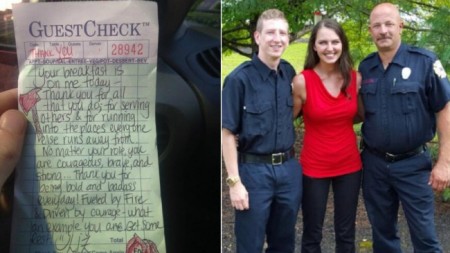 GUESTCHECK™
Thank You 28942
Your breakfast is
on me today -
Thank you for all
that you do; for serving
others & for running
into the places everyone
else runs away from.
No matter your role, you
are courageous, brave, and
strong... Thank you for
being bold and badass
everyday! Fueled by Fire
& Driven by courage - what
an example you are. Get some
rest
Total